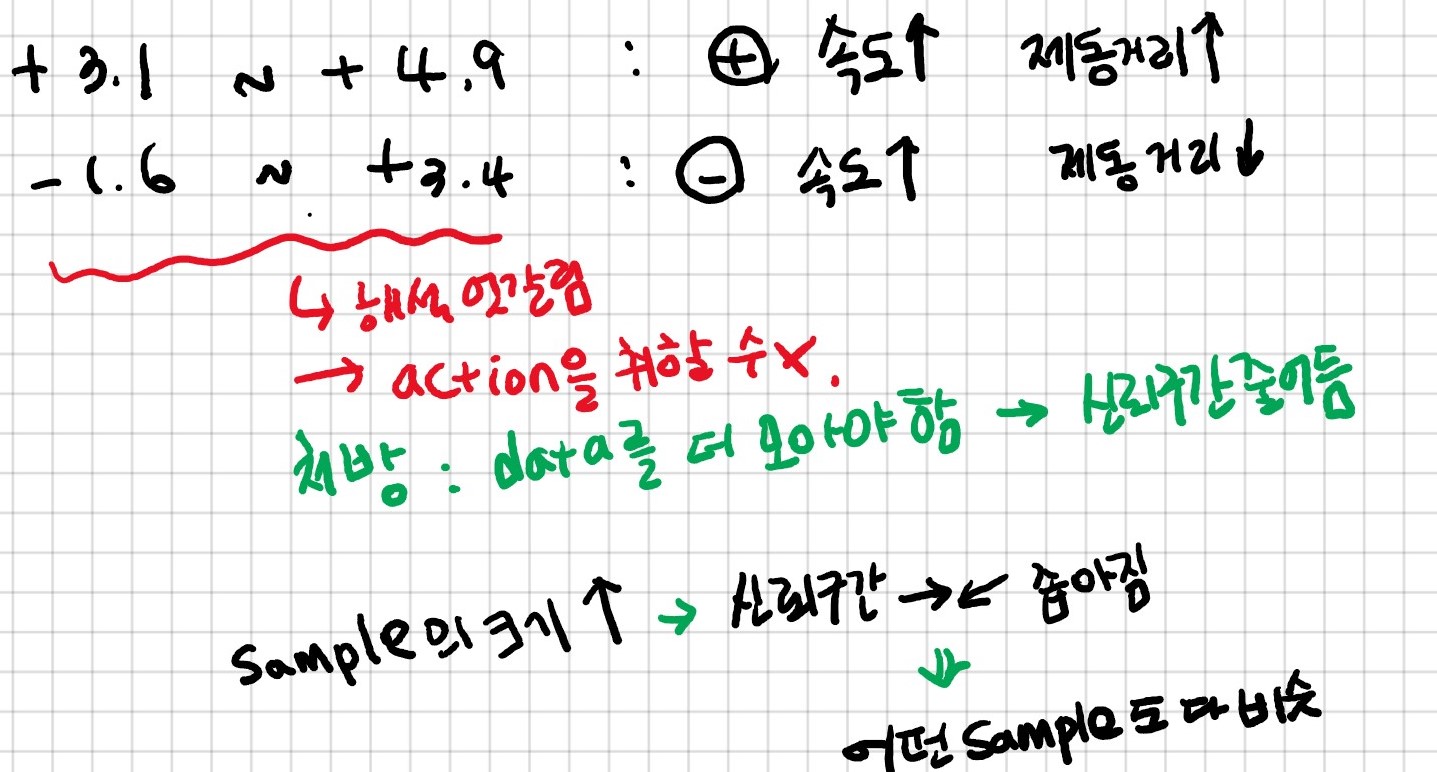 +3.1 ~ +4.9 : ⊕ 속도↑ 제동거리↑
-1.6 ~ +3.4 : ⊖ 속도↑ 제동거리↓
↳ 해석 엇갈림
→ action을 취할 수 X.
처방 : data를 더 모아야 함 → 신뢰구간 줄어듬
Sample의 크기↑ → 신뢰구간 →← 좁아짐
⇓
어떤 Sample도 다 비슷